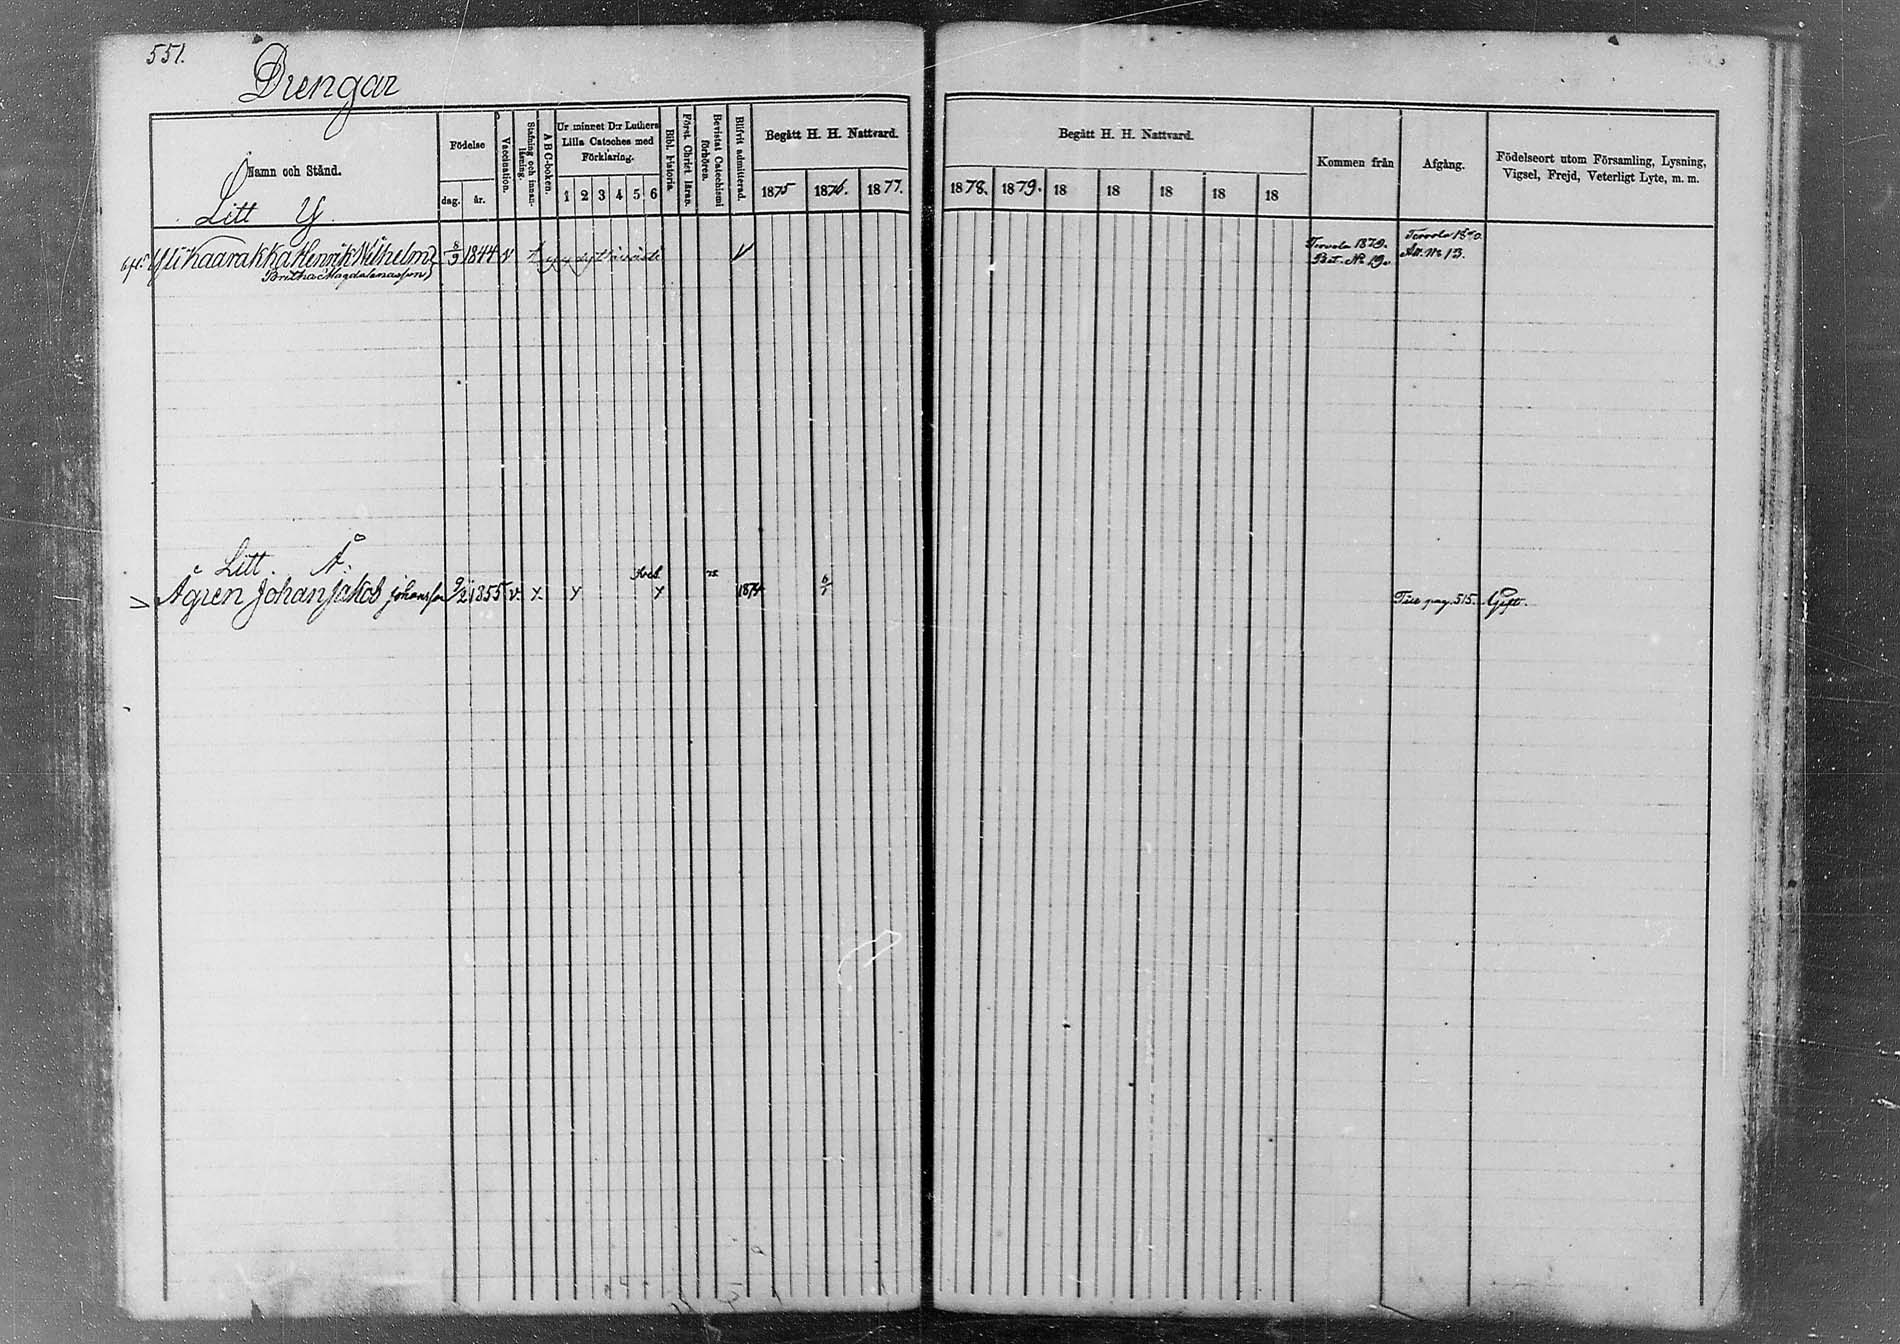 551.
Drengar
Namn och Stånd.
Födelse
dag. år.
Vaccination.
Stafning och innan-läsning.
A B C-boken.
Ur minnet D:r Luthers
Lilla Cateches med
Förklaring.
1 2 3 4 5 6
Bibl. historia.
Först. Christ. läran.
Bevistat Catechismi
förhören.
Blifvit admitterad.
Begått H. H. Nattvard.
1875 1876. 1877.
Begått H. H. Nattvard.
1878. 1879. 18 18 18 18 18
Kommen från
Afgång.
Födelseort utom Församling, Lysning,
Vigsel, Frejd, Veterligt Lyte, m. m.
Litt Y.
Ylikaarakka Henrik Wilhelm 8/9 1844 v V Tervola 1879. Tervola
Britha Magdalenasson Bet. No 19. Att. No 13.
Litt. Å.
Ågren Johan Jakob Johansson 9/2 1855 v. x. y y 1874 6/1 Till pag. 515. Gift.